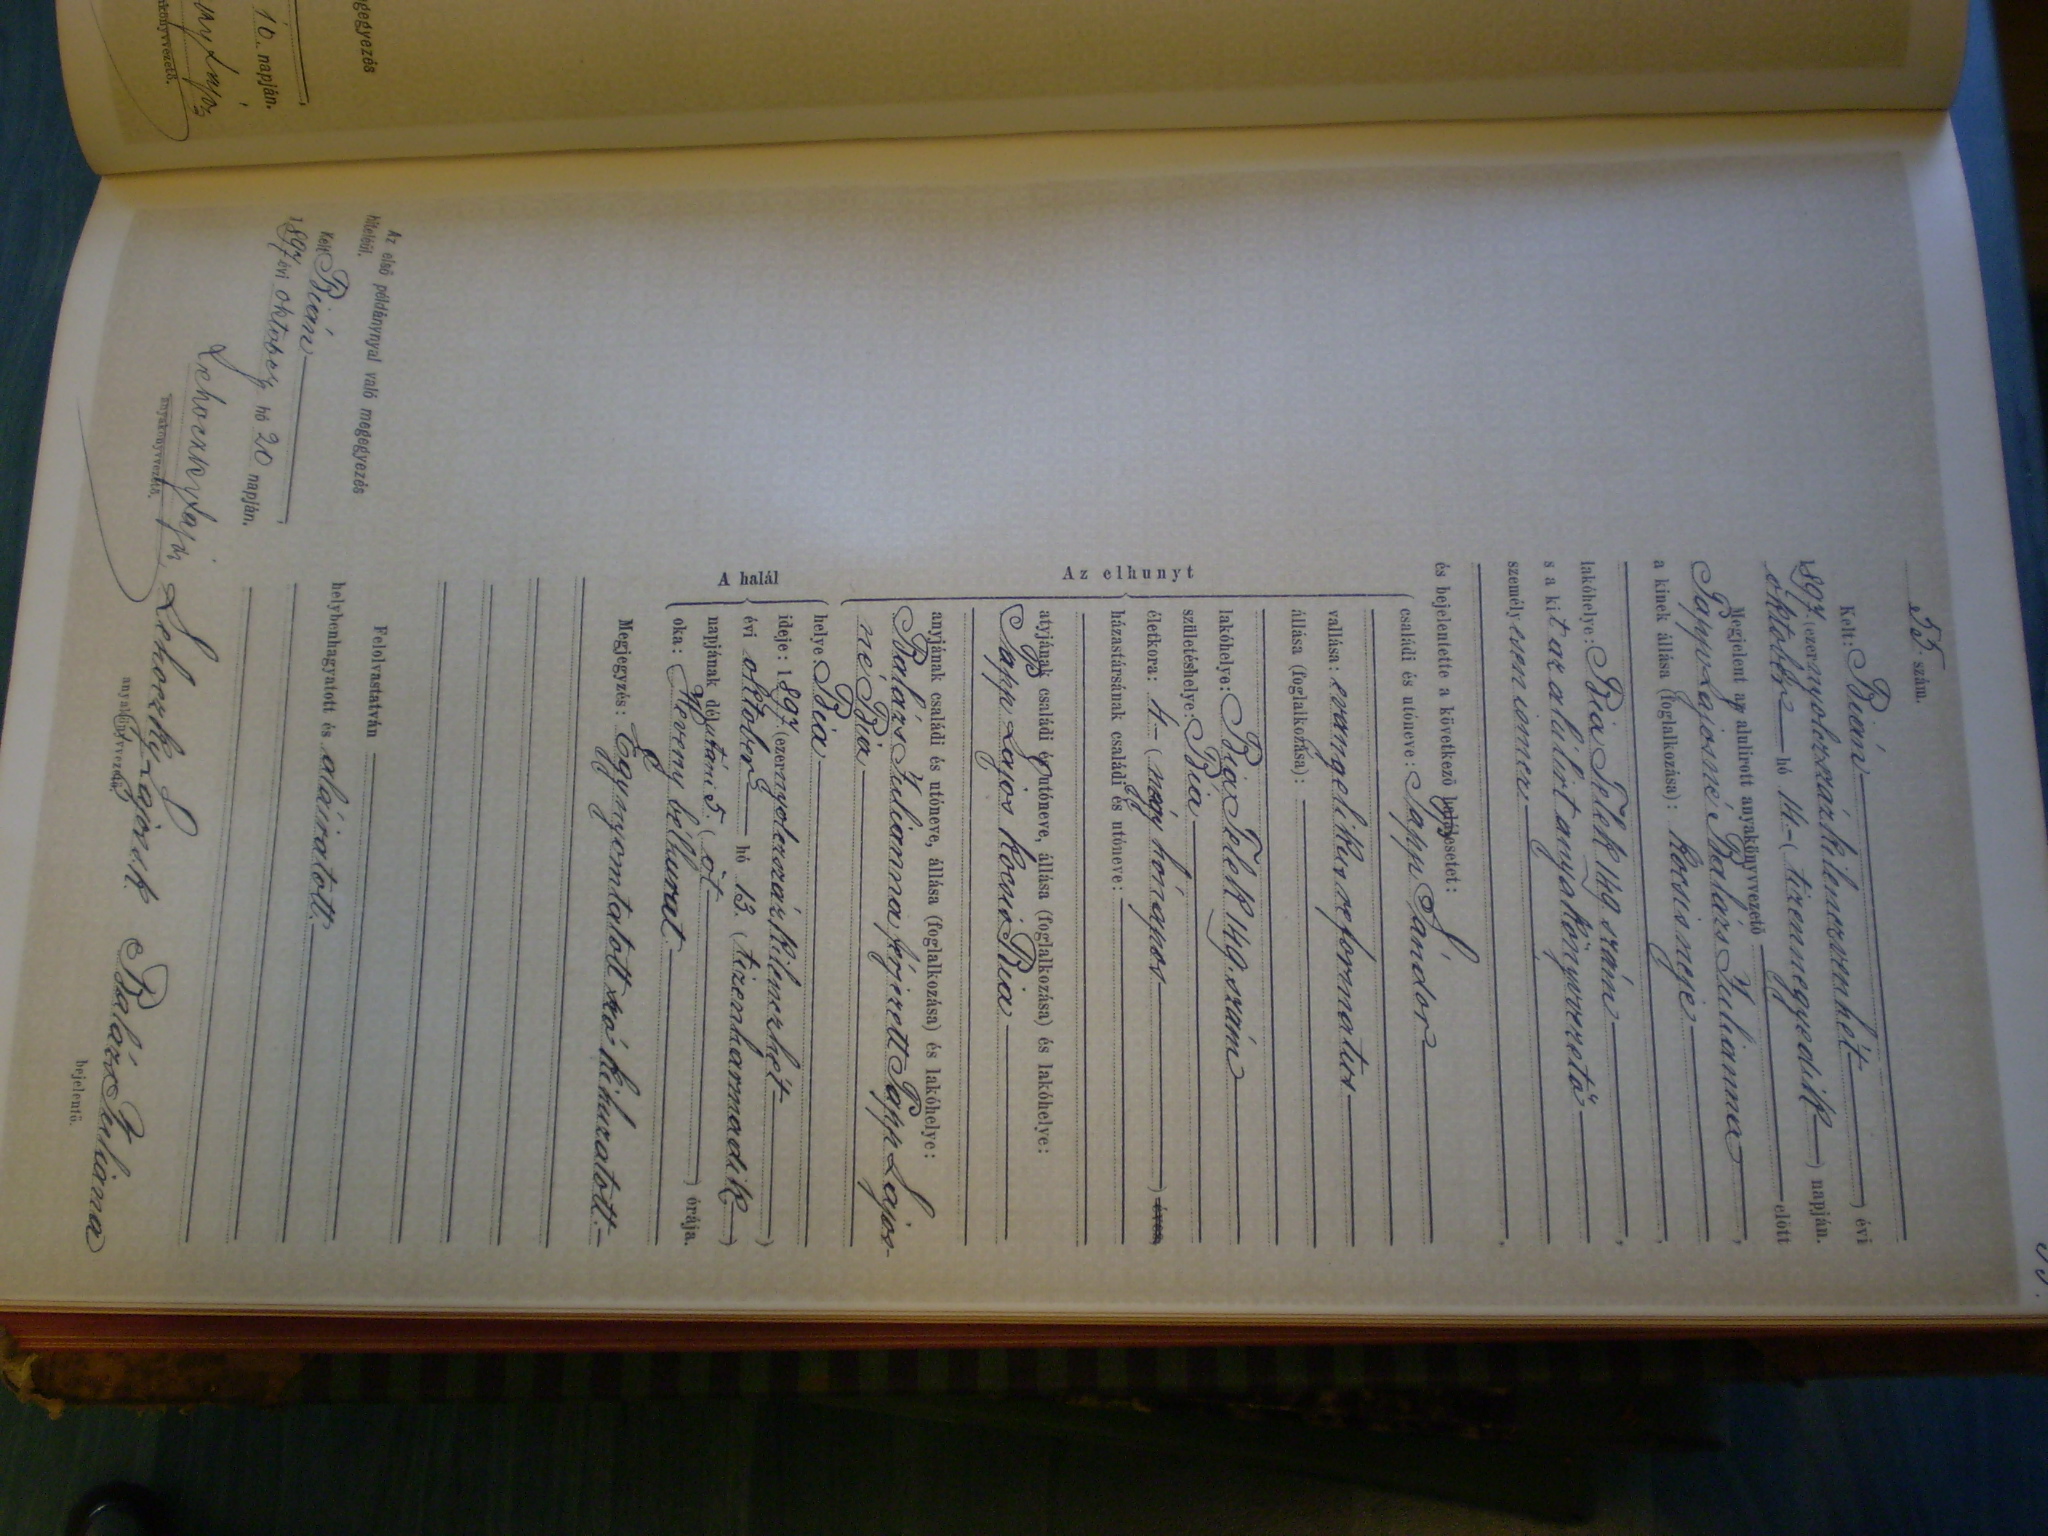 55. szám.
Kelt: Bián
1897 (ezernyolczszázkilenczvenhét) évi
október hó 14-( tizennegyedik ) napján.
Megjelent az alulirott anyakönyvvezető előtt
Papp Lajosné Balázs Julianna,
a kinek állása (foglalkozása): kocsis neje,
lakóhelye: Bia Telek 149 szám,
s a kit az alulirt anyakönyvvezető
személyesen ismer.
és bejelentette a következő halálesetet:
Az elhunyt
családi és utóneve: Papp Sándor
vallása: evangelikus reformatus
állása (foglalkozása):
lakóhelye: Bia, Telek 149. szám
születéshelye: Bia
életkora: 4.- ( négy hónapos ) éves
házastársának családi és utóneve:
atyjának családi és utóneve, állása (foglalkozása) és lakóhelye:
Papp Lajos kocsis Bia
anyjának családi és utóneve, állása (foglalkozása) és lakóhelye:
Balázs Julianna férjezett Papp Lajos-
né Bia
A halál
helye Bia
ideje: 1897 (ezernyolczszázkilenczhét )
évi október hó 13. ( tizenharmadik )
napjának délutáni 5. ( öt ) órája.
oka: Heveny bélhurut.
Megjegyzés: Egy nyomtatott szó kihuzatott.-
Felolvastatván
helybenhagyatott és aláiratott.
Lehoczky Lajos s.k.
anyakönyvvezető
Balázs Juliana
bejelentő.
Az első példánynyal való megegyezés
hiteléül.
Kelt Bián,
1897 évi október hó 20 napján.
Lehoczky Lajos
anyakönyvvezető.
10. napján.